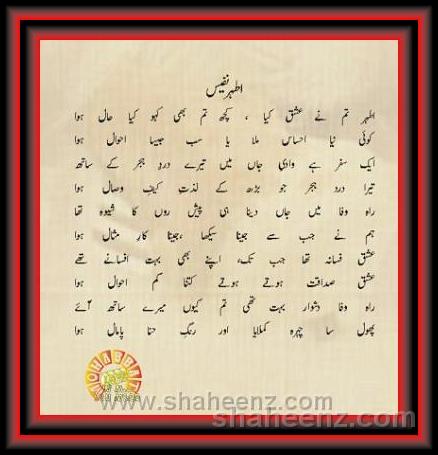 اطہر نفیس
اطہر تم نے عشق کیا ، کچھ تم بھی کہو کیا حال ہوا
کوئی نیا احساس ملا یا سب جیسا احوال ہوا
ایک سفر ہے وادیِ جاں میں تیرے دردِ ہجر کے ساتھ
تیرا دردِ ہجر جو بڑھ کے لذتِ کیفِ وصال ہوا
راہِ وفا میں جاں دینا ہی پیش روں کا شیوہ تھا
ہم نے جب سے جینا سیکھا ،جینا کارِ مثال ہوا
عشق فسانہ تھا جب تک، اپنے بھی بہت افسانے تھے
عشق صداقت ہوتے ہوتے کتنا کم احوال ہوا
راہِ وفا دشوار بہت تھی تم کیوں میرے ساتھ آئے
پھول سا چہرہ کملایا اور رنگِ حنا پامال ہوا
MOHABBAT
www.shaheenz.com
shaheenz.com